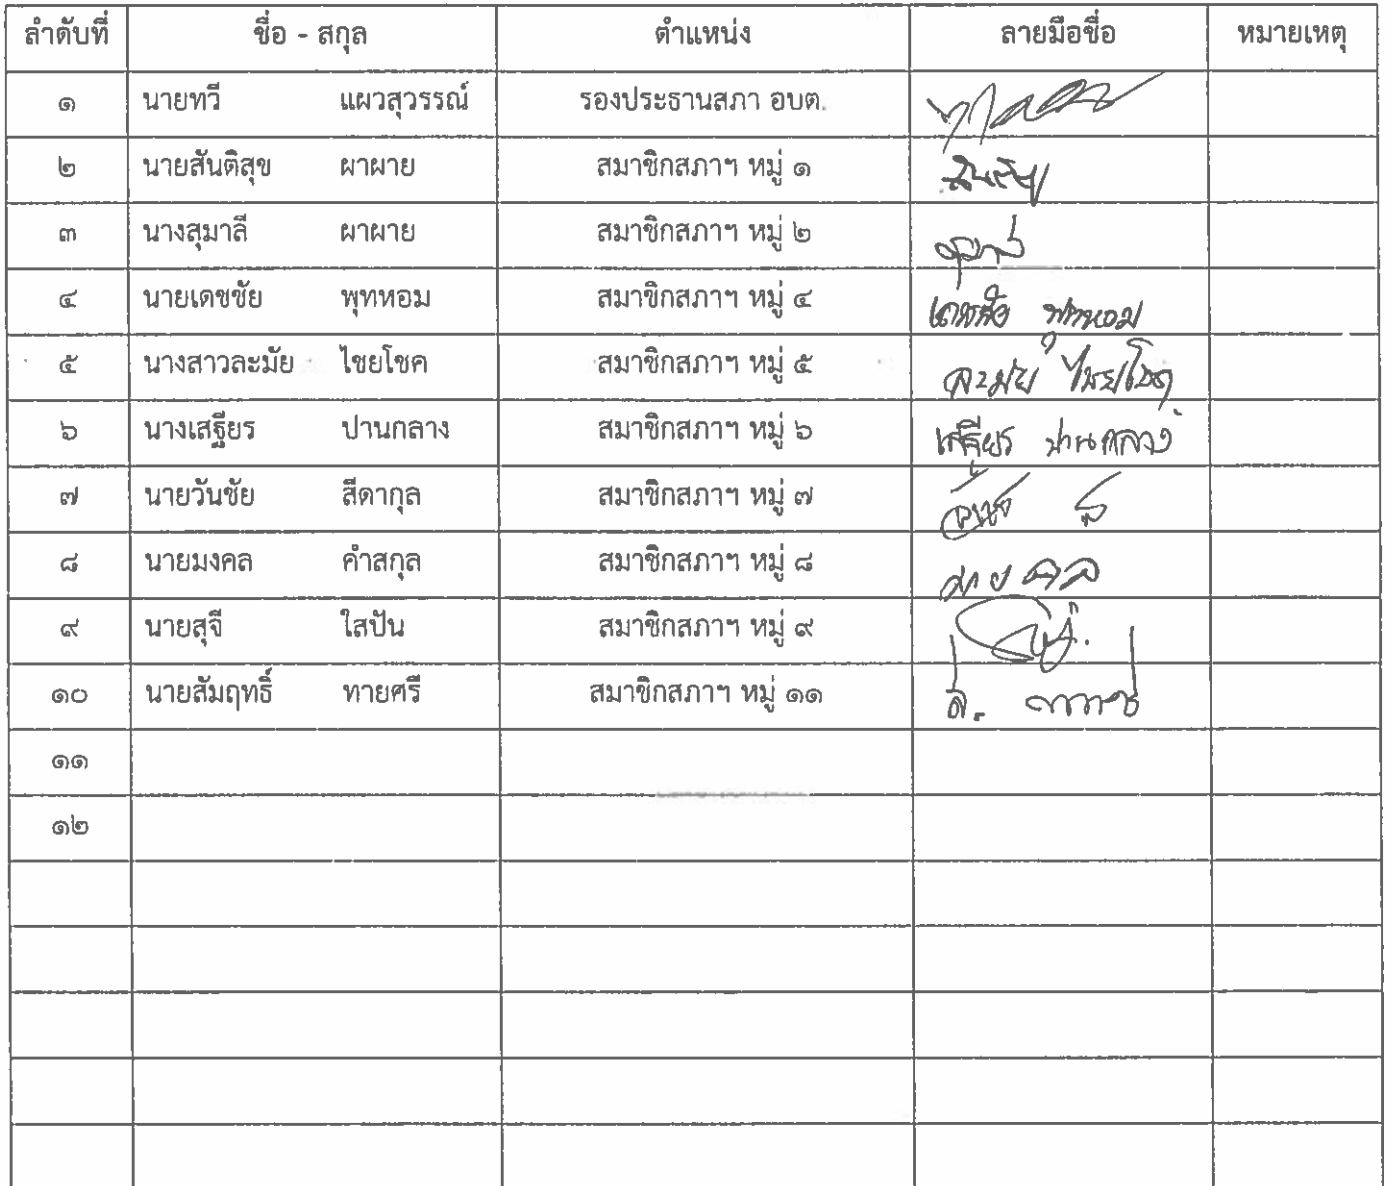 ลำดับที่ ชื่อ - สกุล ตำแหน่ง ลายมือชื่อ หมายเหตุ
๑ นายทวี แผวสุวรรณ์ รองประธานสภา อบต.
๒ นายสันติสุข ผาผาย สมาชิกสภาฯ หมู่ ๑
๓ นางสุมาลี ผาผาย สมาชิกสภาฯ หมู่ ๒
๔ นายเดชชัย พุทหอม สมาชิกสภาฯ หมู่ ๔ เดชชัย พุทหอม
๕ นางสาวละมัย ไชยโชค สมาชิกสภาฯ หมู่ ๕ ละมัย ไชยโชค
๖ นางเสฐียร ปานกลาง สมาชิกสภาฯ หมู่ ๖ เสฐียร ปานกลาง
๗ นายวันชัย สีดากุล สมาชิกสภาฯ หมู่ ๗
๘ นายมงคล คำสกุล สมาชิกสภาฯ หมู่ ๘
๙ นายสุจี ใสปัน สมาชิกสภาฯ หมู่ ๙
๑๐ นายสัมฤทธิ์ ทายศรี สมาชิกสภาฯ หมู่ ๑๑
๑๑
๑๒